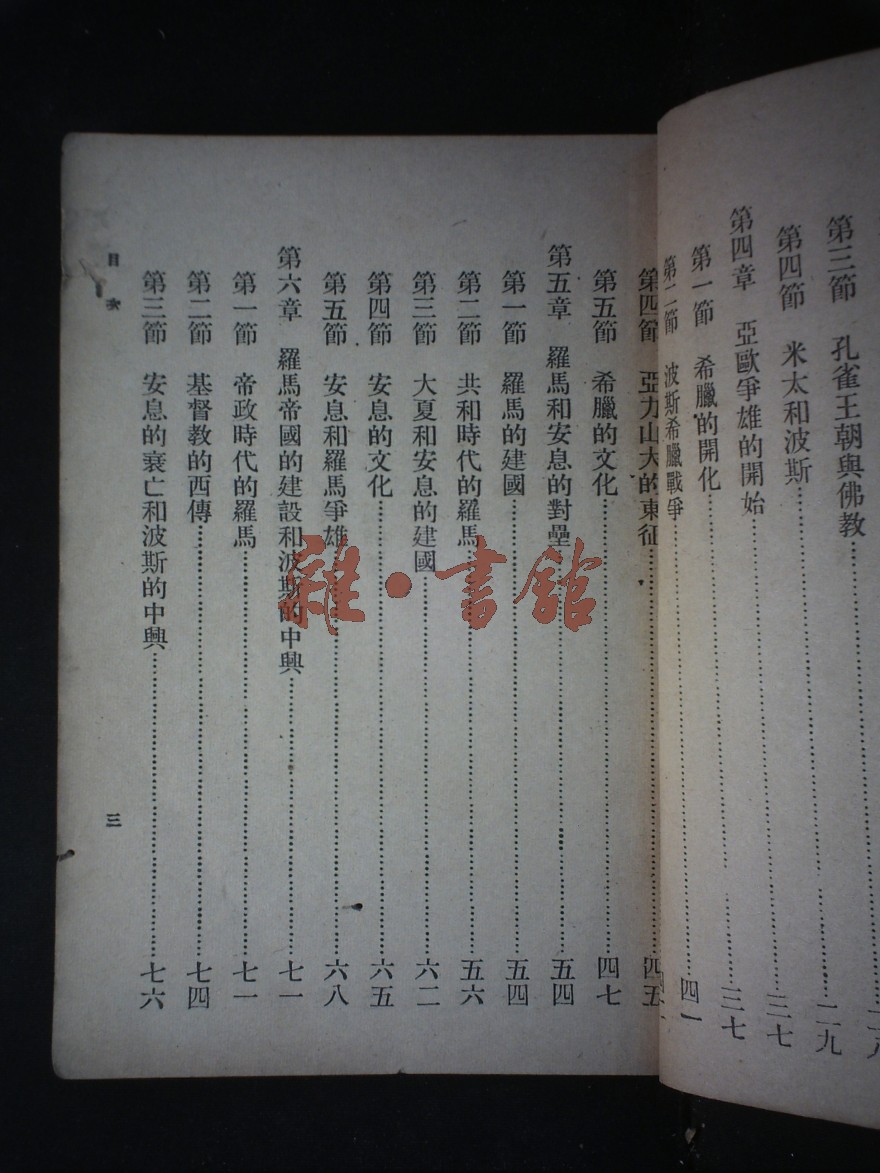 第三節　孔雀王朝與佛教……二九
第四節　米太和波斯……三七
第四章　亞歐爭雄的開始……三七
第一節　希臘的開化……四一
第二節　波斯希臘戰爭……
第四節　亞力山大的東征……四五
第五節　希臘的文化……四七
第五章　羅馬和安息的對壘……五四
第一節　羅馬的建國……五四
第二節　共和時代的羅馬……五六
第三節　大夏和安息的建國……六二
第四節　安息的文化……六五
第五節　安息和羅馬爭雄……六八
第六章　羅馬帝國的建設和波斯的中興……七一
第一節　帝政時代的羅馬……七一
第二節　基督教的西傳……七四
第三節　安息的衰亡和波斯的中興……七六
目次
三
雜·書館